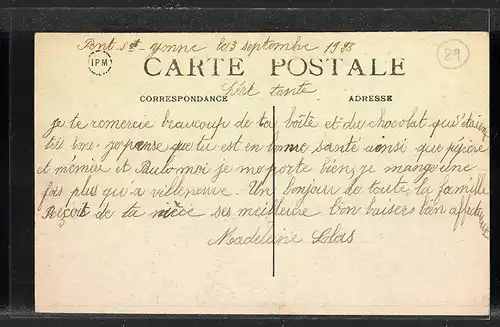 Pont sur yonne le 3 septembre 19
89
IPM
CARTE POSTALE
CORRESPONDANCE
ADRESSE
tante
je te remercie beaucoup de ta boîte et du chocolat qui étaient
très bons je pense que tu est en bonne santé ainsi que pépère
et mémère et Paulo moi je me porte bien, je mange une
fois plus qu'a villeneuve. Un bonjour de toute la famille
Reçoit de ta nièce ses meilleure bon baisers bien affectueux
Madeleine